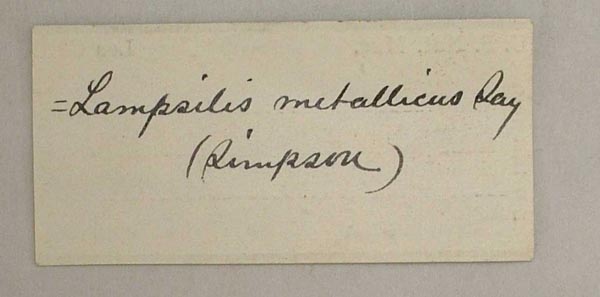 =Lampsilis metallicus Say
(Simpson)